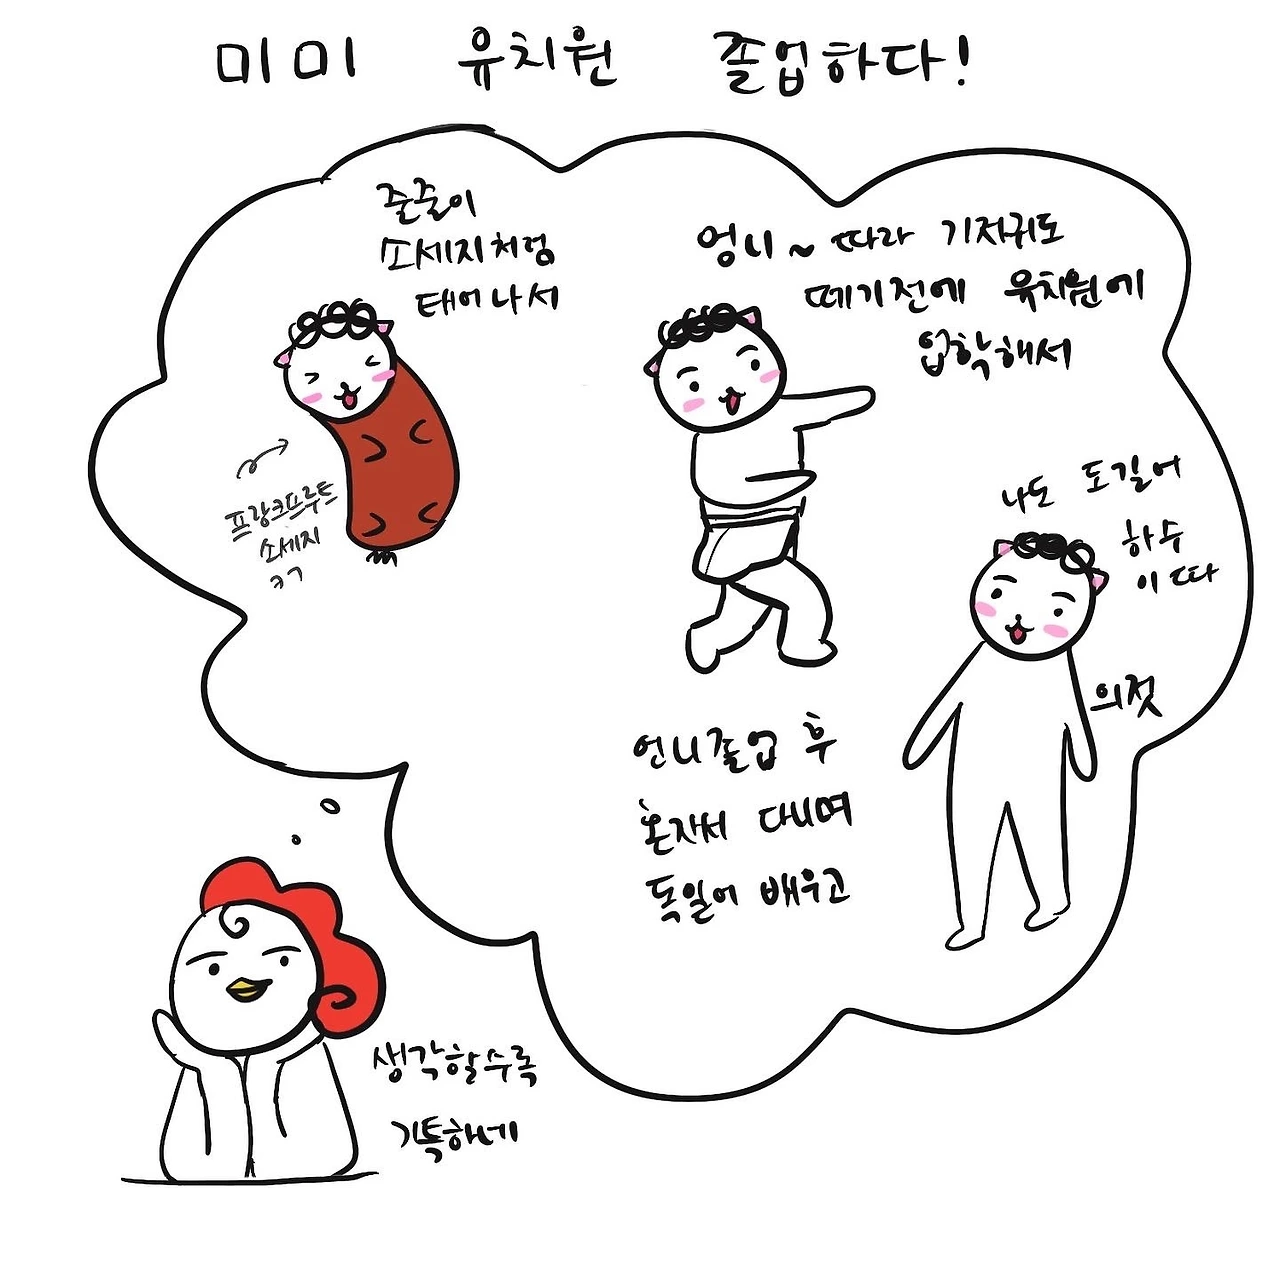 미미 유치원 졸업하다!
줄줄이
쏘세지처럼
태어나서
프랑크프루트
쏘세지
ㅋㄱ
엉니~ 따라 기저귀도
떼기전에 유치원에
입학해서
나도 도길어
하수
이따
의젓
언니졸업 후
혼자서 다니며
독일어 배우고
생각할수록
기특하네